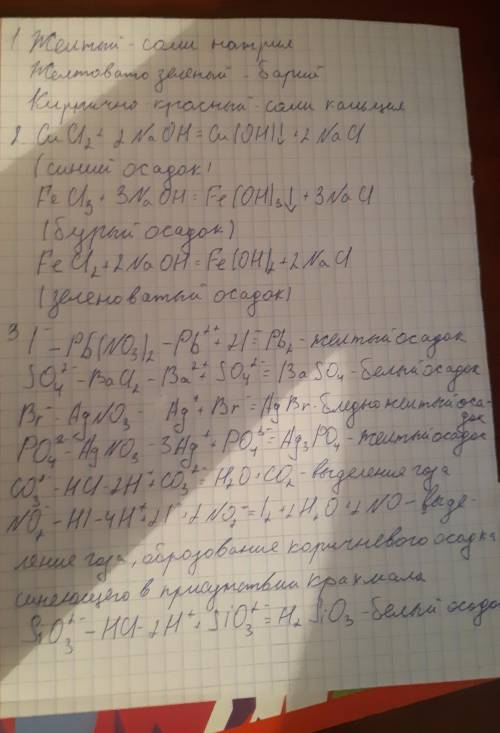 1 Желтый - соли натрия
Желтовато зеленый - барий
Кирпично-красный - соли кальция
2 CuCl2 + 2NaOH = Cu(OH)↓ + 2NaCl
(синий осадок)
FeCl3 + 3NaOH = Fe(OH)3↓ + 3NaCl
(бурый осадок)
FeCl2 + 2NaOH = Fe(OH)2 + 2NaCl
(зеленоватый осадок)
3 I⁻ - Pb(NO3)2 - Pb²⁺ + 2I⁻ = PbI2 - желтый осадок
SO4²⁻ - BaCl2 - Ba²⁺ + SO4²⁻ = BaSO4 - белый осадок
Br⁻ - AgNO3 - Ag⁺ + Br⁻ = AgBr - бледно желтый оса-
док
PO4³⁻ - AgNO3 - 3Ag⁺ + PO4³⁻ = Ag3PO4 - желтый осадок
CO3²⁻ - HCl - 2H⁺ + CO3²⁻ = H2O + CO2 - выделение гоda
NO2⁻ - HI - 4H⁺ + 2I⁻ + 2NO2⁻ = I2 + 2H2O + 2NO - выде-
ление года, образование коричневого осадка
синеющего в присутствии крахмала
SiO3²⁻ - HCl - 2H⁺ + SiO3²⁻ = H2SiO3 - белый осадо